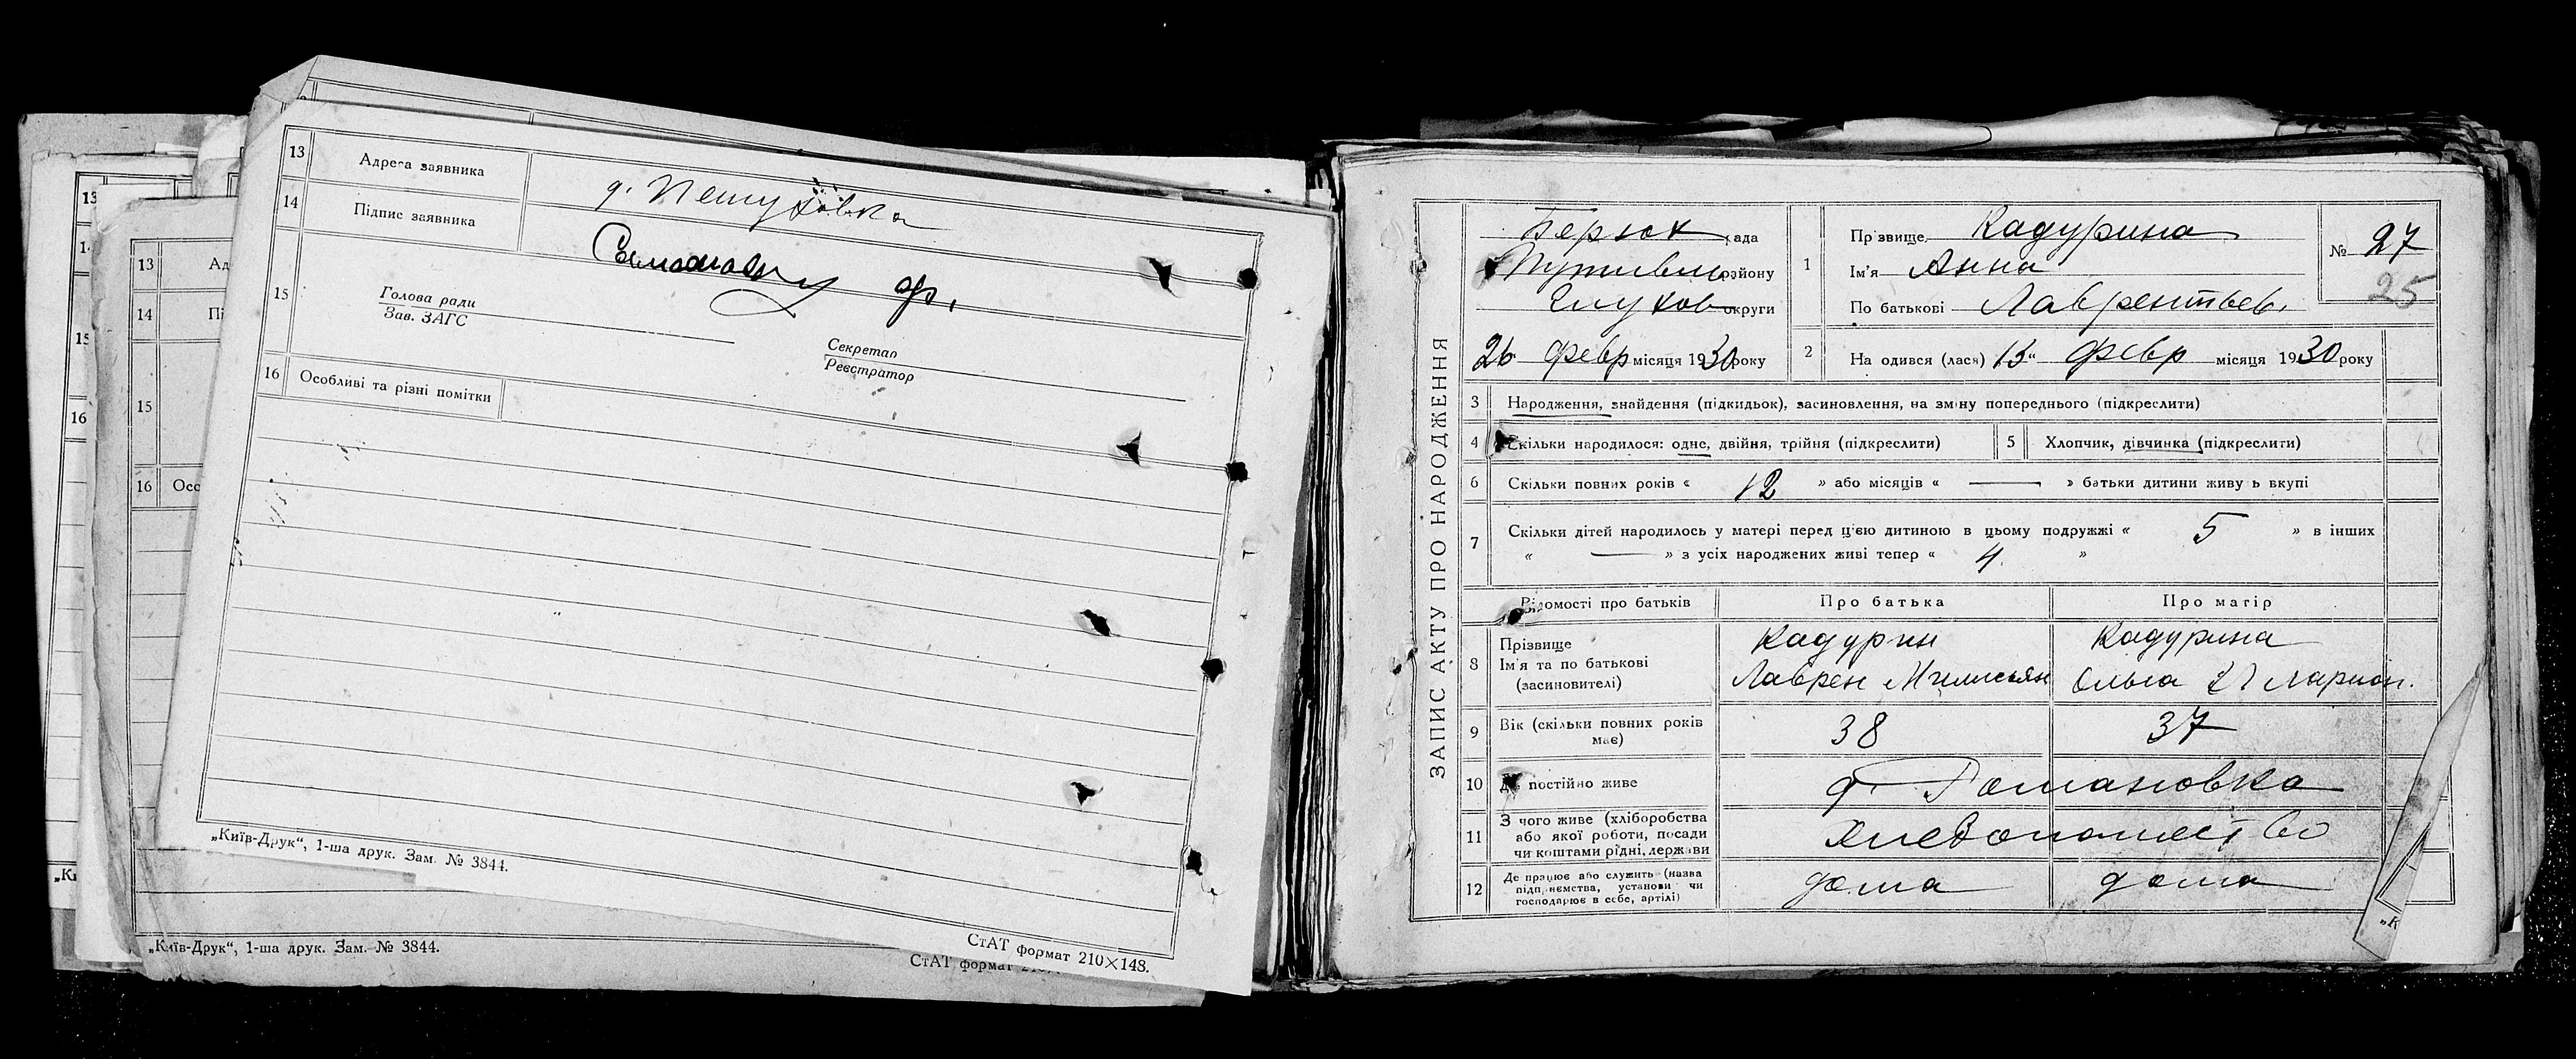 13
Адреса заявника
д. Петуховка
14
Підпис заявника
15
Голова ради
Зав. ЗАГС
Секретар
Реєстратор
16
Особливі та різні помітки
„Київ-Друк“, 1-ша друк. Зам. № 3844.
СтАТ формат 210×148.
13
Ад
14
Пі
15
16
Осс
„Київ-Друк“, 1-ша друк. Зам. № 3844.
СтАТ формат
13
16
„Кі
ЗАПИС АКТУ ПРО НАРОДЖЕННЯ
Берюх ради
Путивль району
Глухов округи
26 февр місяця 1930 року
1
Прізвище Кадурина
Ім'я Анна
По батькові Лаврентьев.
№ 27
25
2
На одився (лася) 15 “ февр місяця 1930 року
3
Народження, знайдення (підкидьок), засиновлення, на зміну попереднього (підкреслити)
4
Скільки народилося: одне, двійня, трійня (підкреслити)
5
Хлопчик, дівчинка (підкреслити)
6
Скільки повних років « 12 » або місяців « — » батьки дитини живу ь вкупі
7
Скільки дітей народилось у матері перед цією дитиною в цьому подружжі « 5 » в інших
« — » з усіх народжених живі тепер « 4. »
Відомості про батьків
Про батька
Про матір
8
Прізвище
Ім'я та по батькові
(засиновителі)
Кадурин
Лаврен
Кадурина
Ольга Иларион.
9
Вік (скільки повних років
має)
38
37
10
Де постійно живе
д. Романовка
11
З чого живе (хліборобства
або якої роботи, посади
чи коштами рідні, держави
Хлебопашество
12
Де працює або служить (назва
підприємства, установи чи
господарює в себе, артілі)
дома
дома
„К